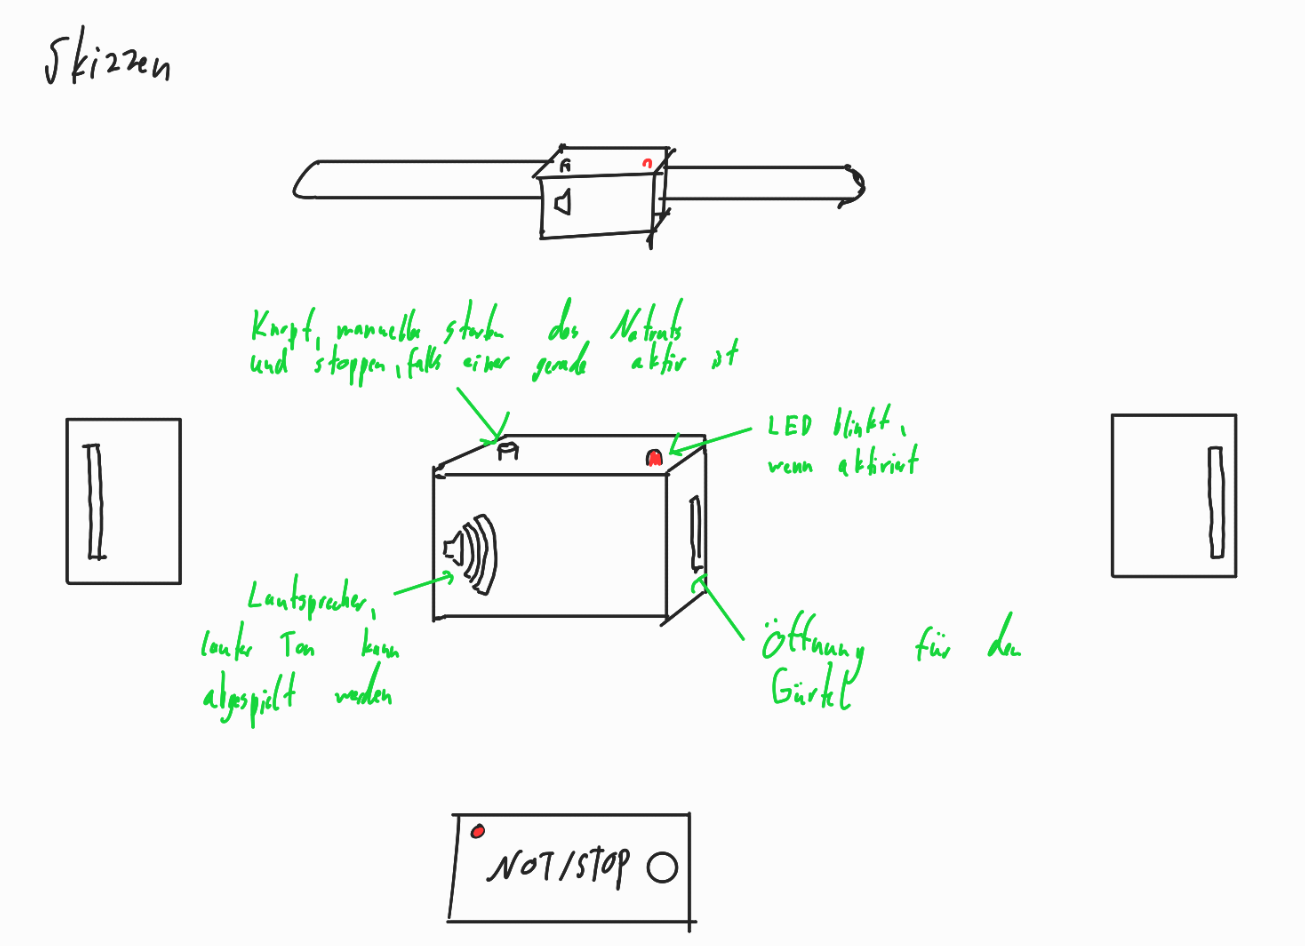 Skizzen
Knopf, manuelles starten des Notrufs
und stoppen, falls einer gerade aktiv ist
LED blinkt,
wenn aktiviert
Lautsprecher,
lauter Ton kann
abgespielt werden
Öffnung für den
Gürtel
NOT/STOP